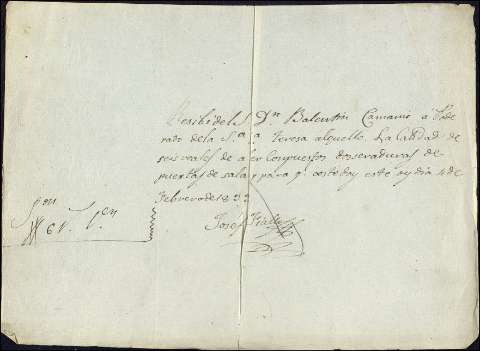 Recibi del S. Dn Balentin Camanio a Pode
rado de la S.ª a Teresa alquello La Catidad de
seis reales de aber Conpuestos dos seraduras de
puertas de sala y para q. coste doy este oy dia 4 de
Febrero de 18
Josef
6 rˢ. Vˢⁿ